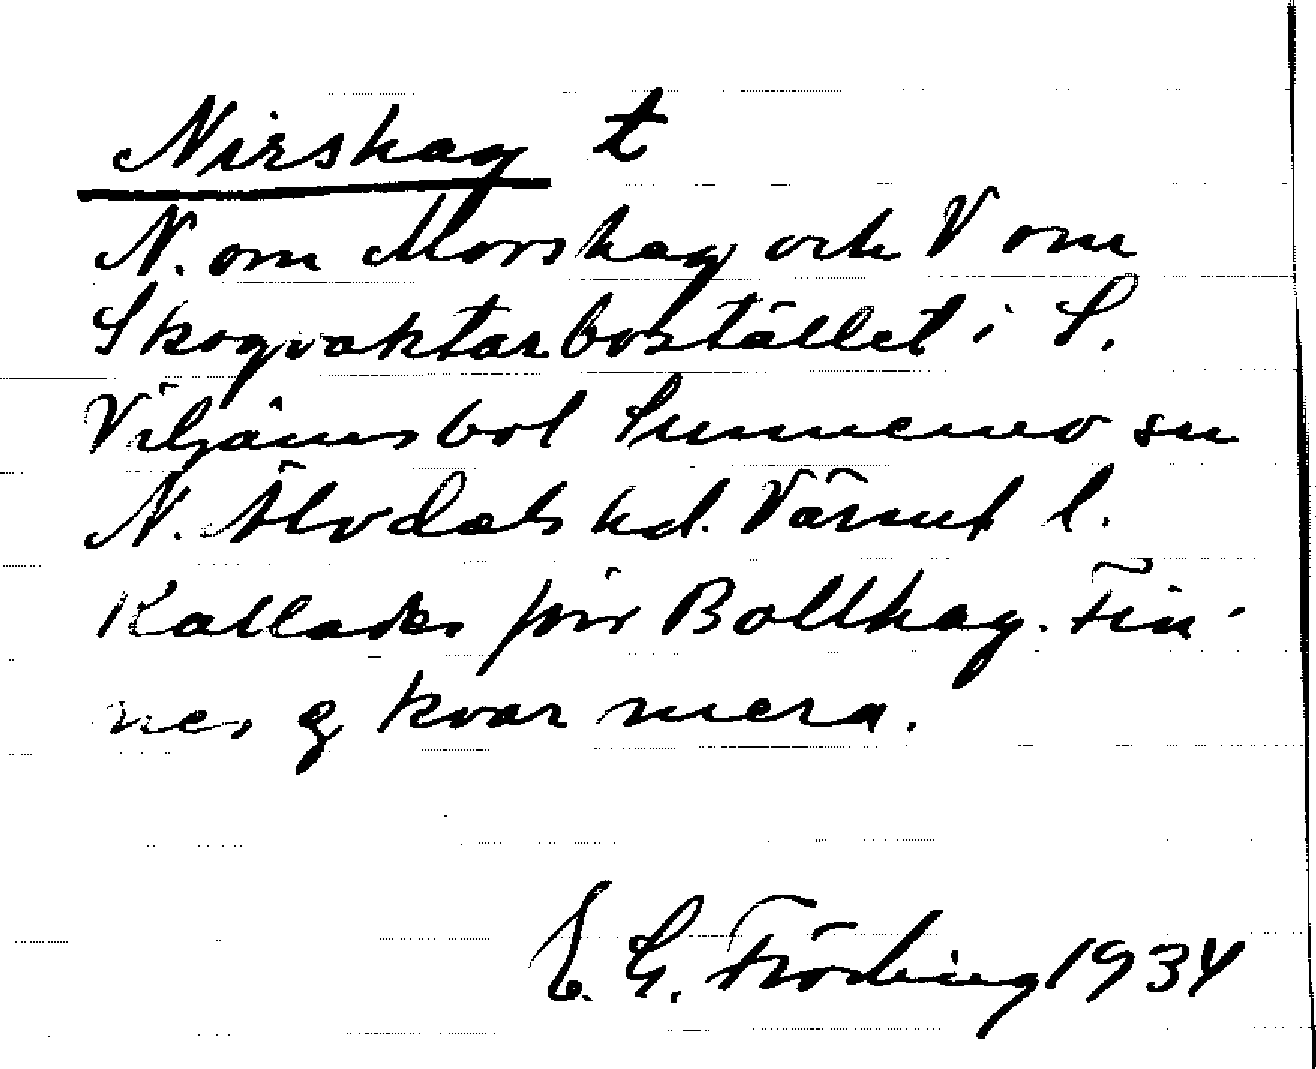 Nirshag t
N. om Morshag och V om
Skogvaktarbostället i S.
Viljamsbol Sunnemo sn
N. Älvdals hd. Värml l.
Kallades förr Bollhag. Fin-
nes ej kvar mera.
E. G. Fröding 1934